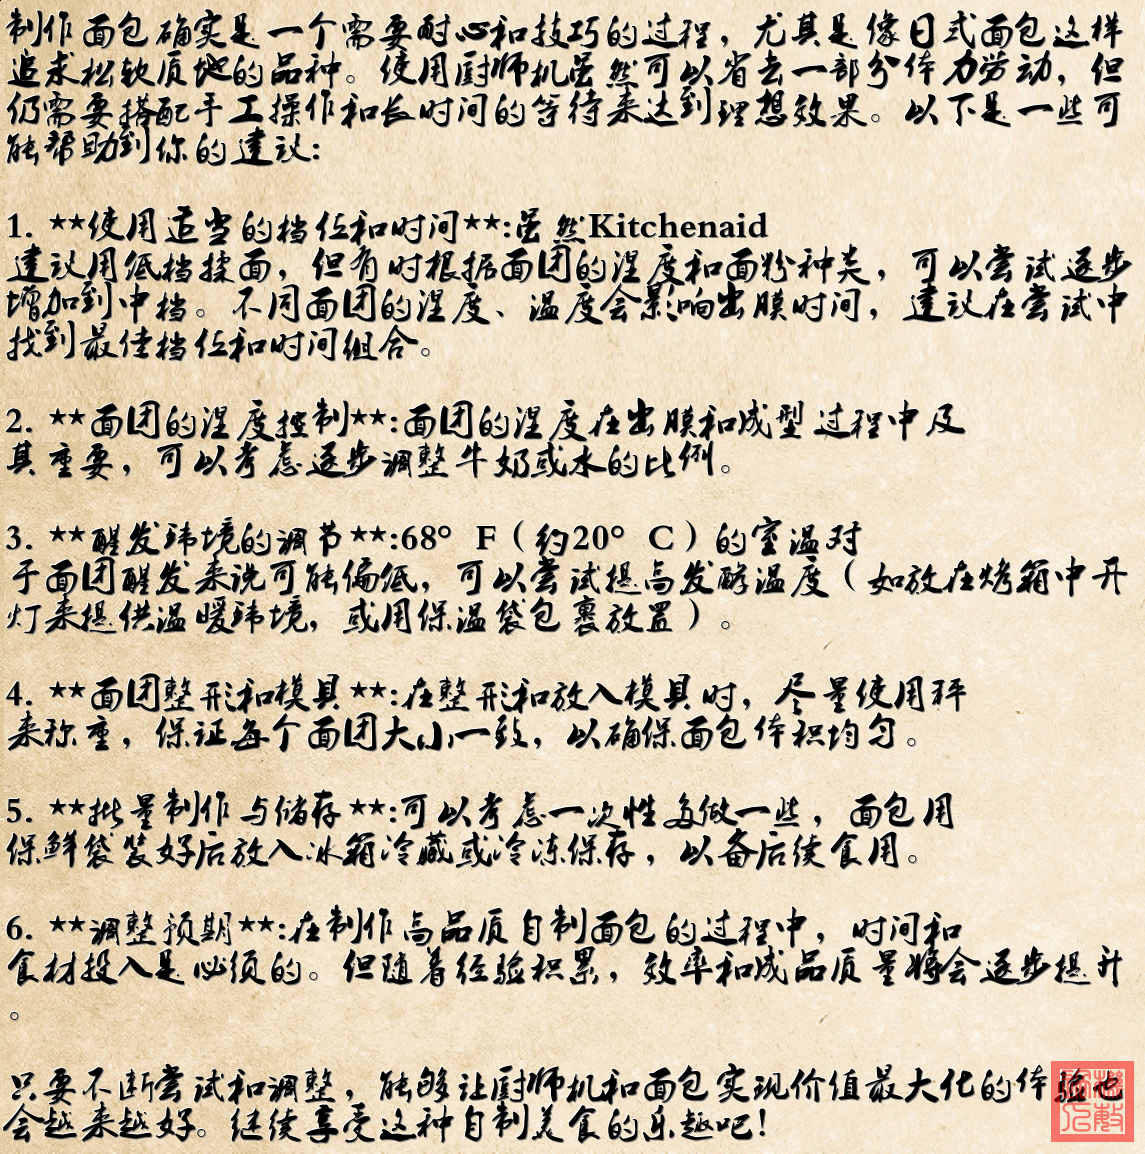 制作面包确实是一个需要耐心和技巧的过程，尤其是像日式面包这样
追求松软质地的品种。使用厨师机虽然可以省去一部分体力劳动，但
仍需要搭配手工操作和长时间的等待来达到理想效果。以下是一些可
能帮助到你的建议：
1. **使用适当的档位和时间**:虽然Kitchenaid
建议用低档揉面，但有时根据面团的湿度和面粉种类，可以尝试逐步
增加到中档。不同面团的湿度、温度会影响出膜时间，建议在尝试中
找到最佳档位和时间组合。
2. **面团的湿度控制**:面团的湿度在出膜和成型过程中及
其重要，可以考虑逐步调整牛奶或水的比例。
3. **醒发环境的调节**:68° F（约20° C）的室温对
于面团醒发来说可能偏低，可以尝试提高发酵温度（如放在烤箱中开
灯来提供温暖环境，或用保温袋包裹放置）。
4. **面团整形和模具**:在整形和放入模具时，尽量使用秤
来称重，保证每个面团大小一致，以确保面包体积均匀。
5. **批量制作与储存**:可以考虑一次性多做一些，面包用
保鲜袋装好后放入冰箱冷藏或冷冻保存，以备后续食用。
6. **调整预期**:在制作高品质自制面包的过程中，时间和
食材投入是必须的。但随着经验积累，效率和成品质量将会逐步提升
。
只要不断尝试和调整，能够让厨师机和面包实现价值最大化的体验也
会越来越好。继续享受这种自制美食的乐趣吧！